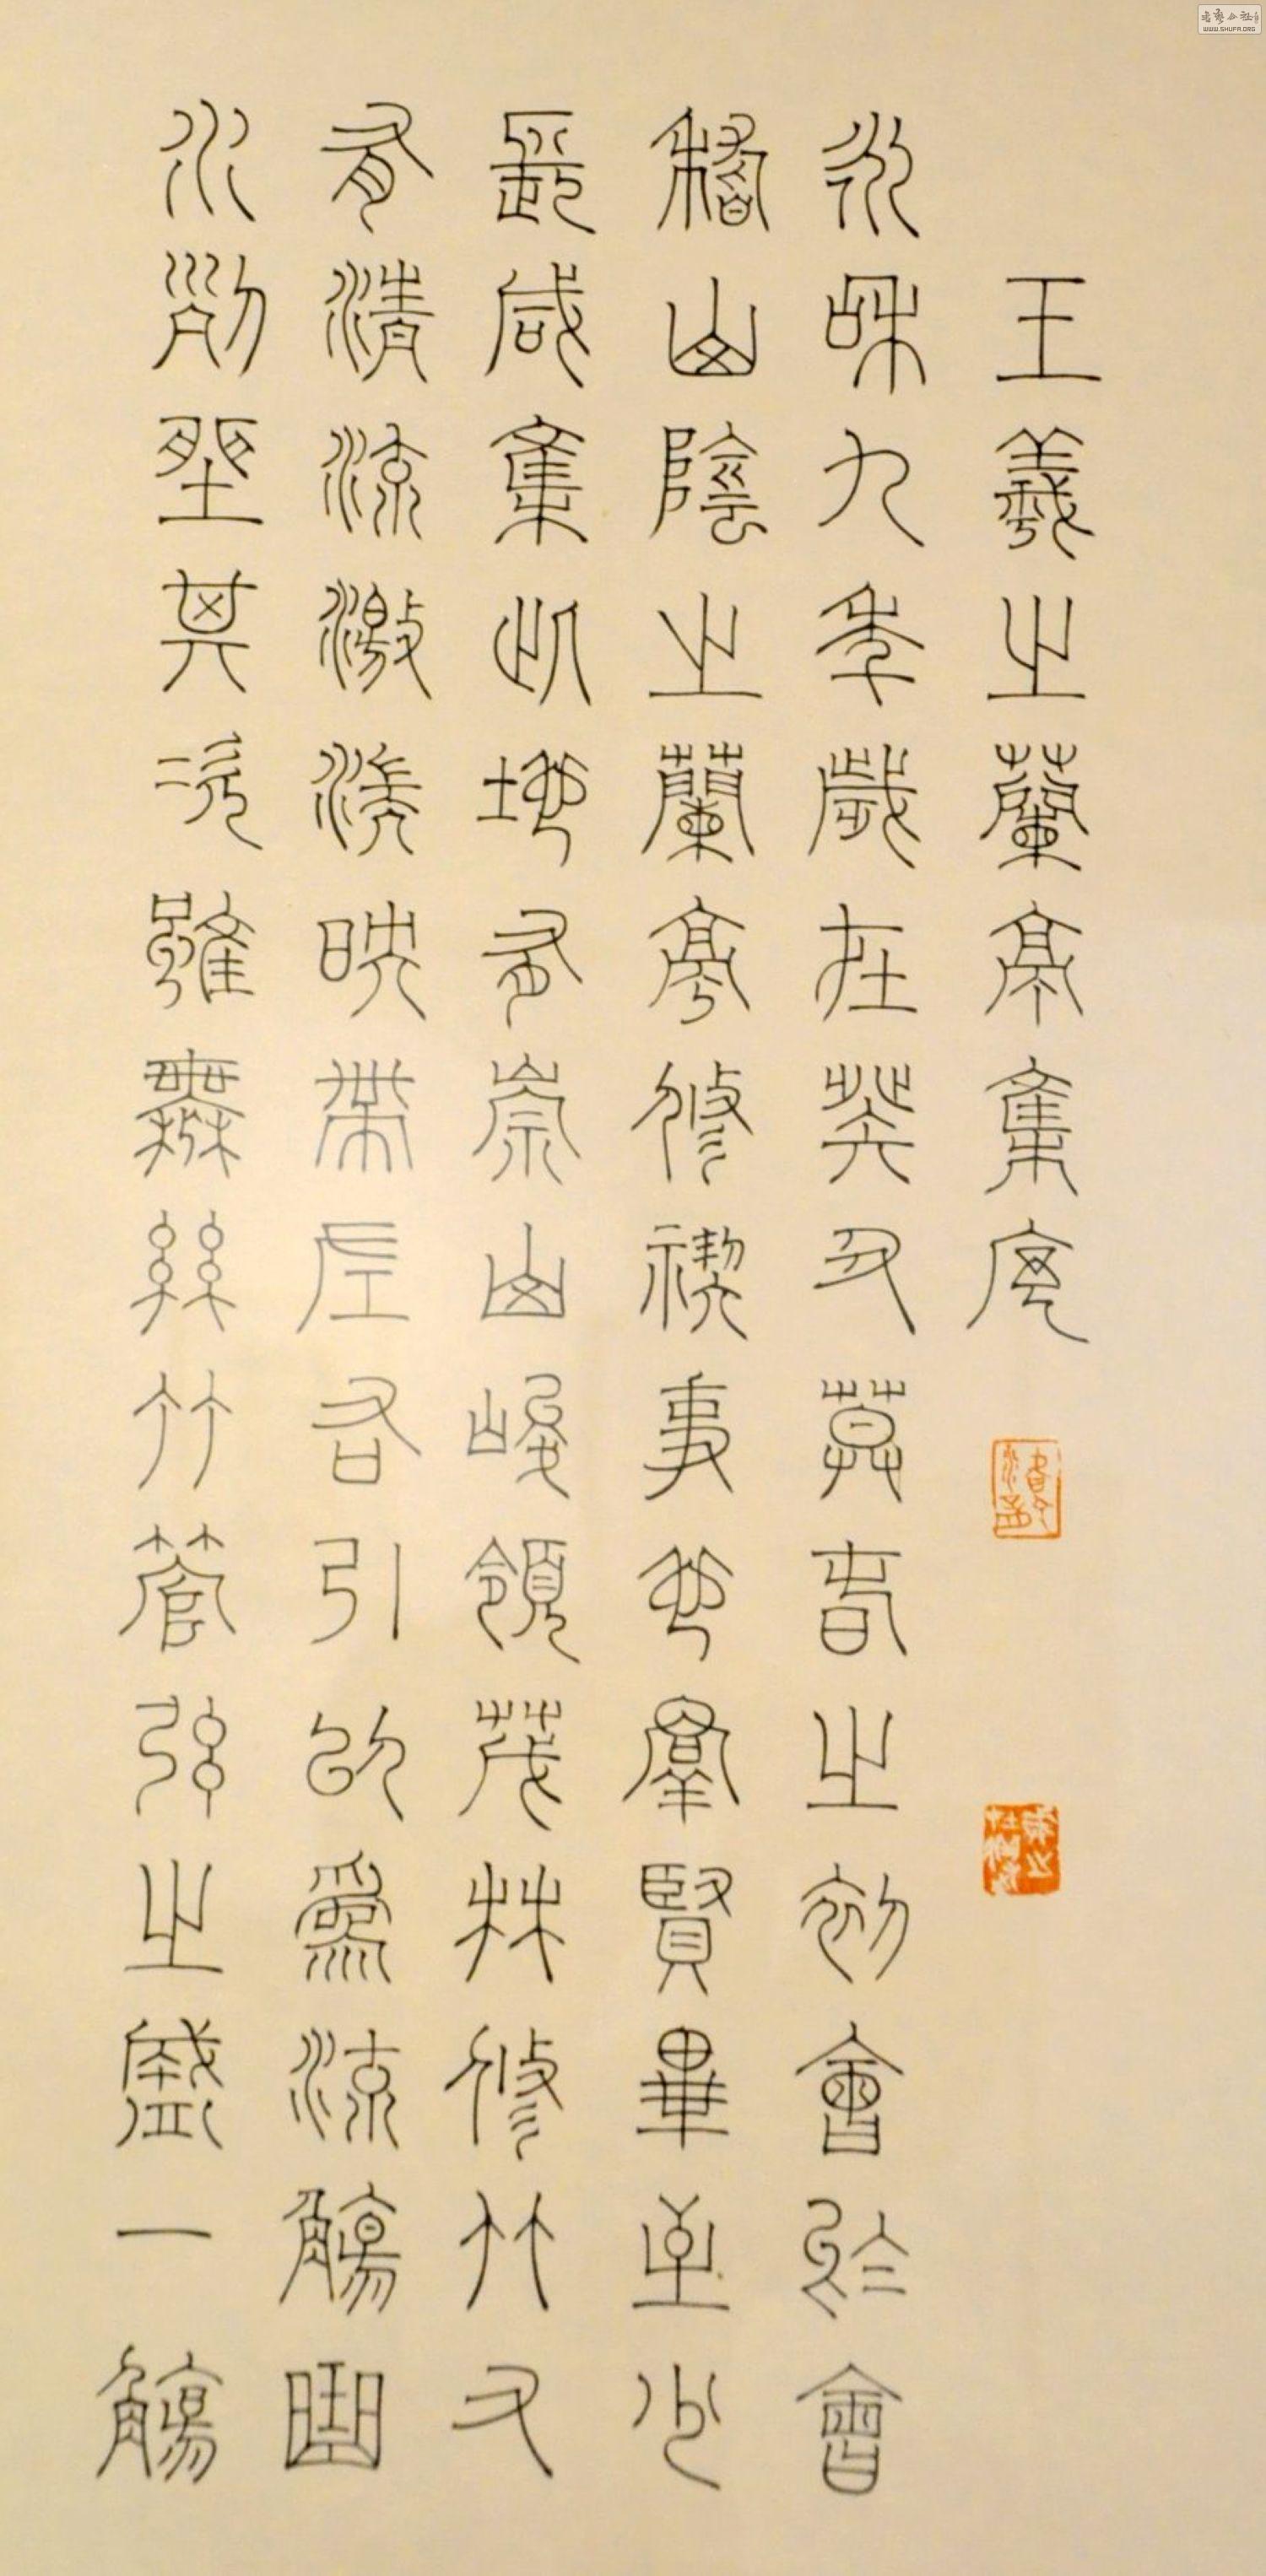 王羲之蘭亭集序
永和九年歲在癸丑莫春之初會於會
稽山陰之蘭亭修禊事也羣賢畢至少
長咸集此地有崇山峻領茂林修竹又
有清流激湍映帶左右引以爲流觴曲
水列坐其次雖無絲竹管弦之盛一觴
WWW.SHUFA.ORG